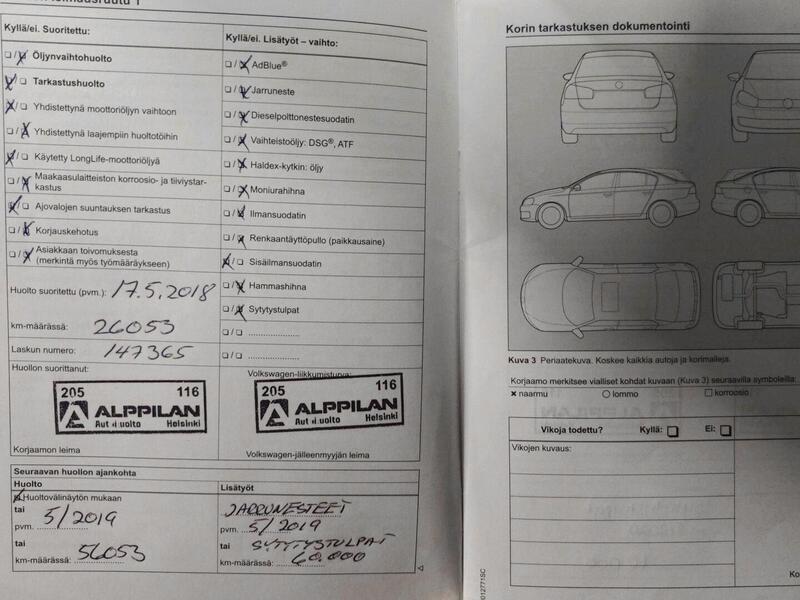 Kyllä/ei. Suoritettu:
☐/☒ Öljynvaihtohuolto
☒/☐ Tarkastushuolto
☒/☐ Yhdistettynä moottoriöljyn vaihtoon
☐/☒ Yhdistettynä laajempiin huoltotöihin
☒/☐ Käytetty LongLife-moottoriöljyä
☐/☒ Maakaasulaitteiston korroosio- ja tiiviystar-
kastus
☒/☐ Ajovalojen suuntauksen tarkastus
☐/☒ Korjauskehotus
☐/☒ Asiakkaan toivomuksesta
(merkintä myös työmääräykseen)
Huolto suoritettu (pvm.): 17.5.2018
km-määrässä: 26053
Laskun numero: 147365
Huollon suorittanut:
205 116
ALPPILAN
Helsinki
Korjaamon leima
Kyllä/ei. Lisätyöt – vaihto:
☐/☒ AdBlue®
☐/☒ Jarruneste
☐/☒ Dieselpolttonestesuodatin
☐/☒ Vaihteistoöljy: DSG®, ATF
☐/☒ Haldex-kytkin: öljy
☐/☒ Moniurahihna
☐/☒ Ilmansuodatin
☐/☒ Renkaantäyttöpullo (paikkausaine)
☒/☐ Sisäilmansuodatin
☐/☒ Hammashihna
☐/☒ Sytytystulpat
☐/☐ ....................
☐/☐ ....................
Volkswagen-liikkumisturva:
205 116
ALPPILAN
Helsinki
Volkswagen-jälleenmyyjän leima
Seuraavan huollon ajankohta
Huolto
☒ Huoltovälinäytön mukaan
tai
pvm. 5/2019
tai
km-määrässä: 56053
Lisätyöt
JARRUNESTEET
pvm. 5/2019
tai SYTYTYSTULPAT
km-määrässä: 60.000
Korin tarkastuksen dokumentointi
Kuva 3 Periaatekuva. Koskee kaikkia autoja ja korimalleja.
Korjaamo merkitsee vialliset kohdat kuvaan (Kuva 3) seuraavilla symboleilla:
✕ naarmu ○ lommo ☐ korroosio
Vikoja todettu? Kyllä: ☐ Ei: ☐
Vikojen kuvaus:
Ko
012771SC